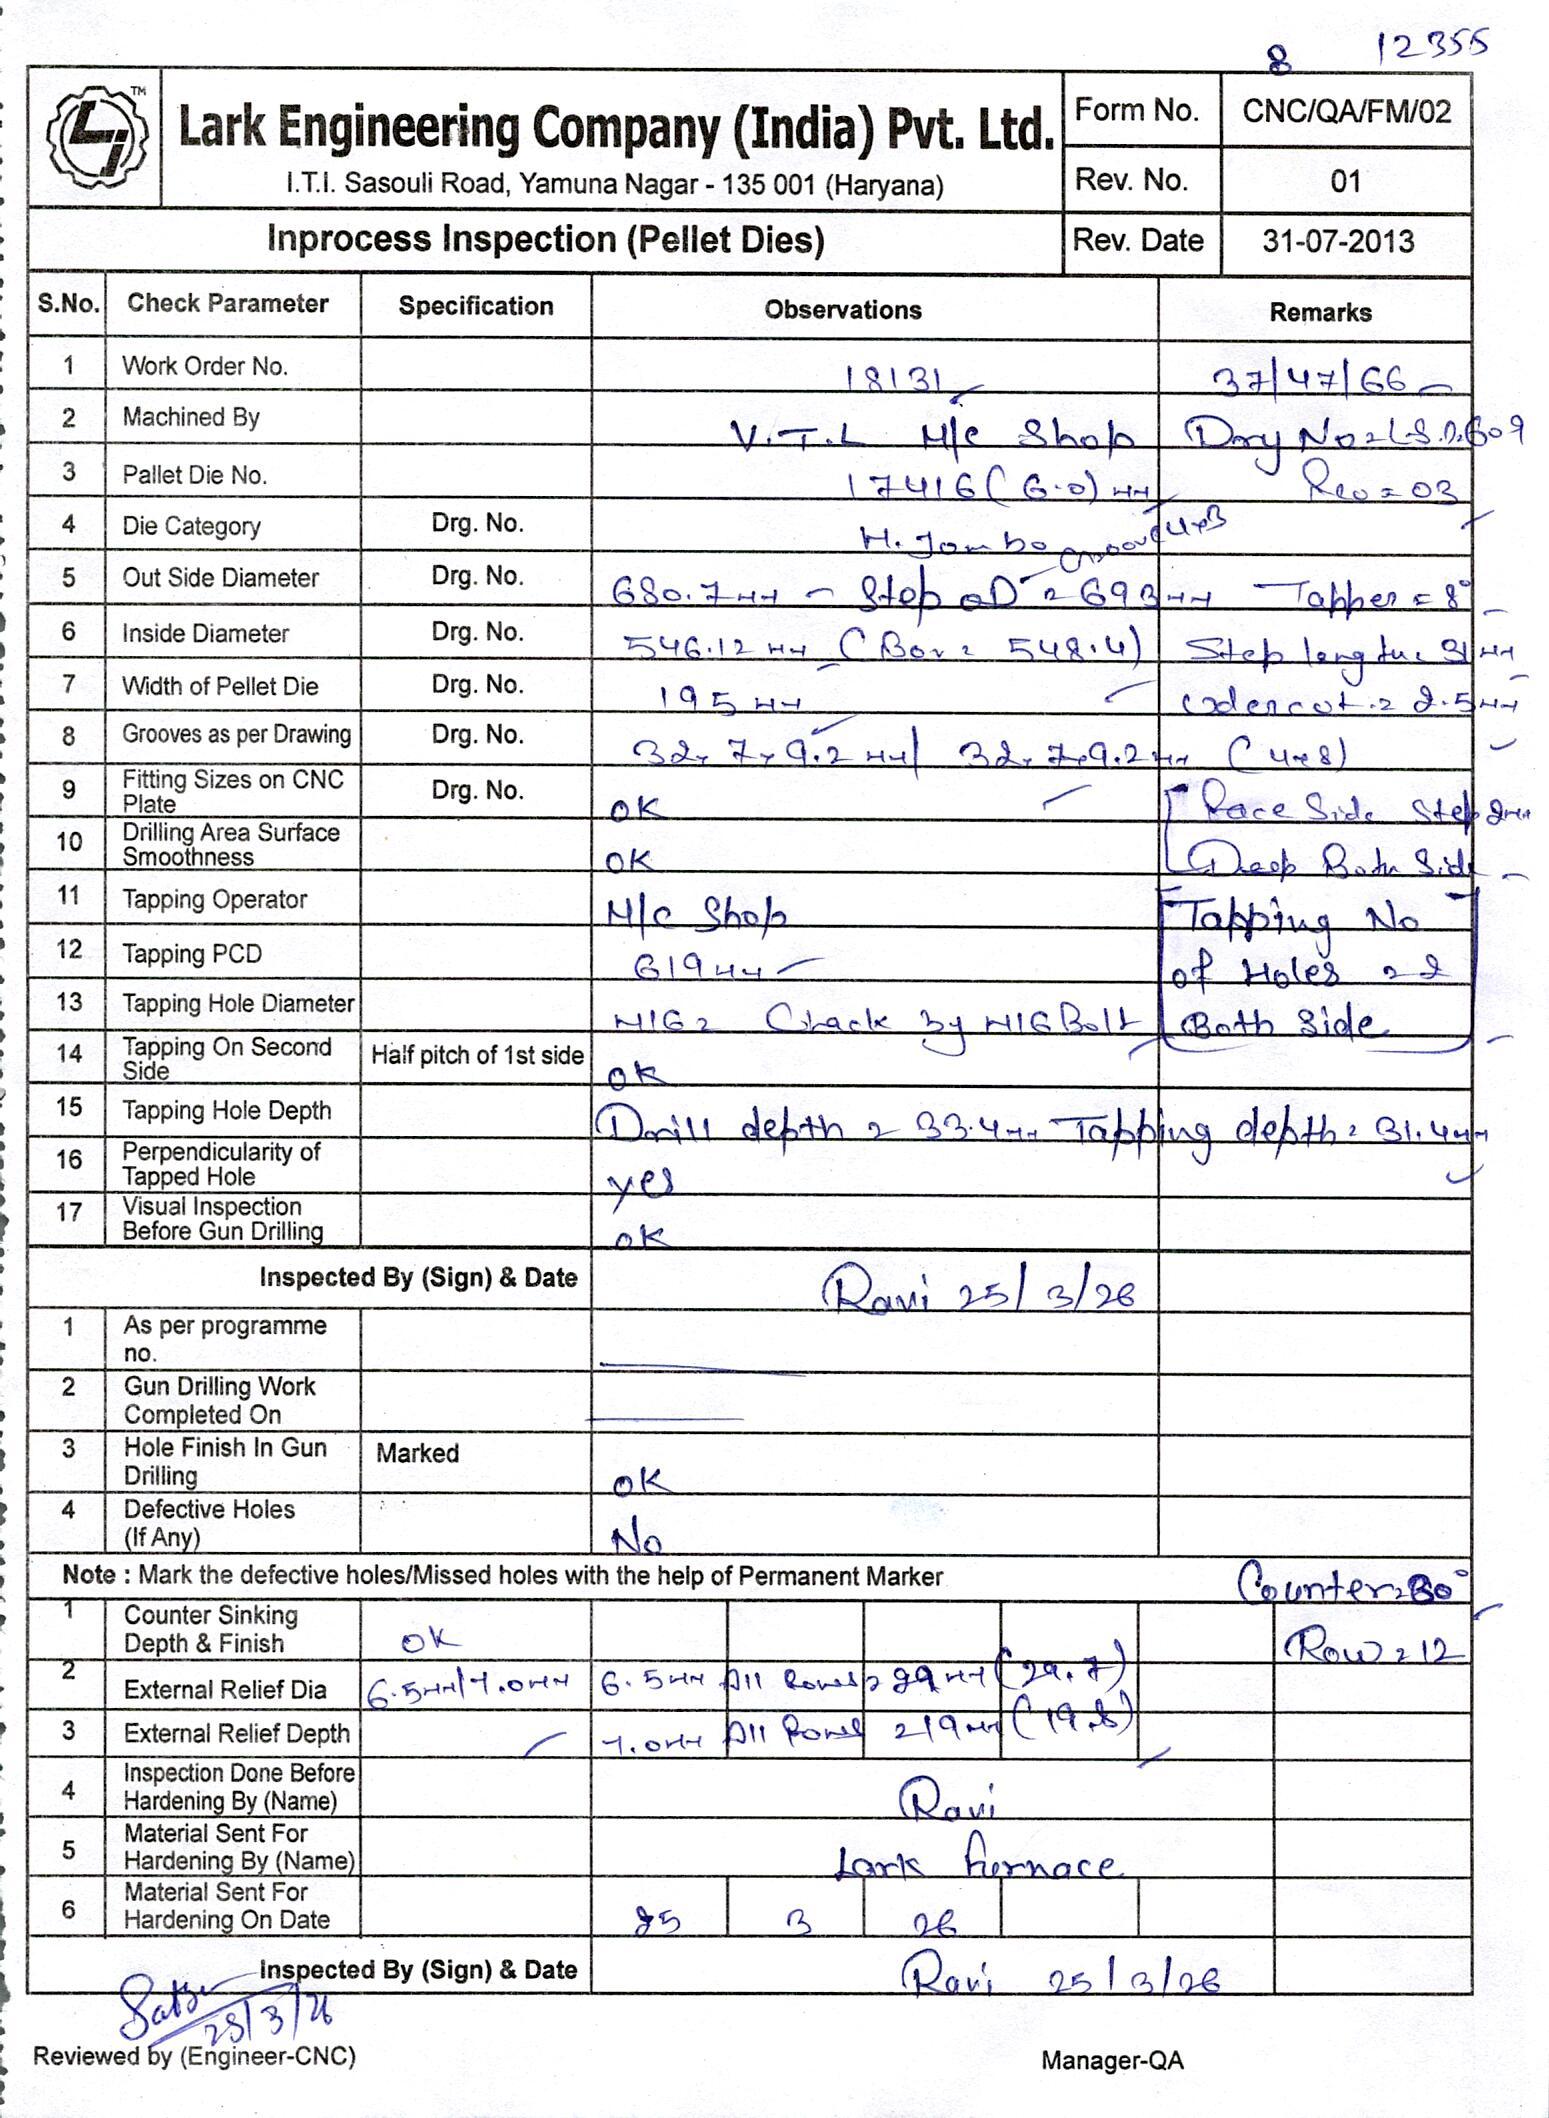 8 12355
TM
Lark Engineering Company (India) Pvt. Ltd.
I.T.I. Sasouli Road, Yamuna Nagar - 135 001 (Haryana)
Form No. CNC/QA/FM/02
Rev. No. 01
Inprocess Inspection (Pellet Dies) Rev. Date 31-07-2013
S.No. Check Parameter Specification Observations Remarks
1 Work Order No. 18131 37/47/66
2 Machined By V.T.L M/c Shop Drg No = L.S.D.609
3 Pallet Die No. 17416 (6.0) mm Rev = 03
4 Die Category Drg. No. H. Jombo Groove 4x3
5 Out Side Diameter Drg. No. 680.7mm - Step OD = 693mm Tapper = 8°
6 Inside Diameter Drg. No. 546.12 mm (Bor = 548.4) Step length = 31mm
7 Width of Pellet Die Drg. No. 195 mm = 2.5mm
8 Grooves as per Drawing Drg. No. 32x7x9.2 mm / 32x7x9.2mm (4x8)
9 Fitting Sizes on CNC Plate Drg. No. OK Race Side Step 2mm
10 Drilling Area Surface Smoothness OK Deep Both Side
11 Tapping Operator M/c Shop Tapping No
12 Tapping PCD 619mm of Holes = 2
13 Tapping Hole Diameter M16 = Chack by M16 Bolt Both Side
14 Tapping On Second Side Half pitch of 1st side OK
15 Tapping Hole Depth Drill depth = 33.4mm Tapping depth = 31.4mm
16 Perpendicularity of Tapped Hole yes
17 Visual Inspection Before Gun Drilling OK
Inspected By (Sign) & Date Ravi 25/3/26
1 As per programme no.
2 Gun Drilling Work Completed On
3 Hole Finish In Gun Drilling Marked OK
4 Defective Holes (If Any) No
Note : Mark the defective holes/Missed holes with the help of Permanent Marker Counter = 30°
1 Counter Sinking Depth & Finish OK Row = 12
2 External Relief Dia 6.5mm/7.0mm 6.5mm All Rows = 29mm (29.7)
3 External Relief Depth 7.0mm All Rows = 19mm (19.8)
4 Inspection Done Before Hardening By (Name) Ravi
5 Material Sent For Hardening By (Name) Lark furnace
6 Material Sent For Hardening On Date 25 3 26
Inspected By (Sign) & Date Ravi 25/3/26
25/3/26
Reviewed by (Engineer-CNC) Manager-QA